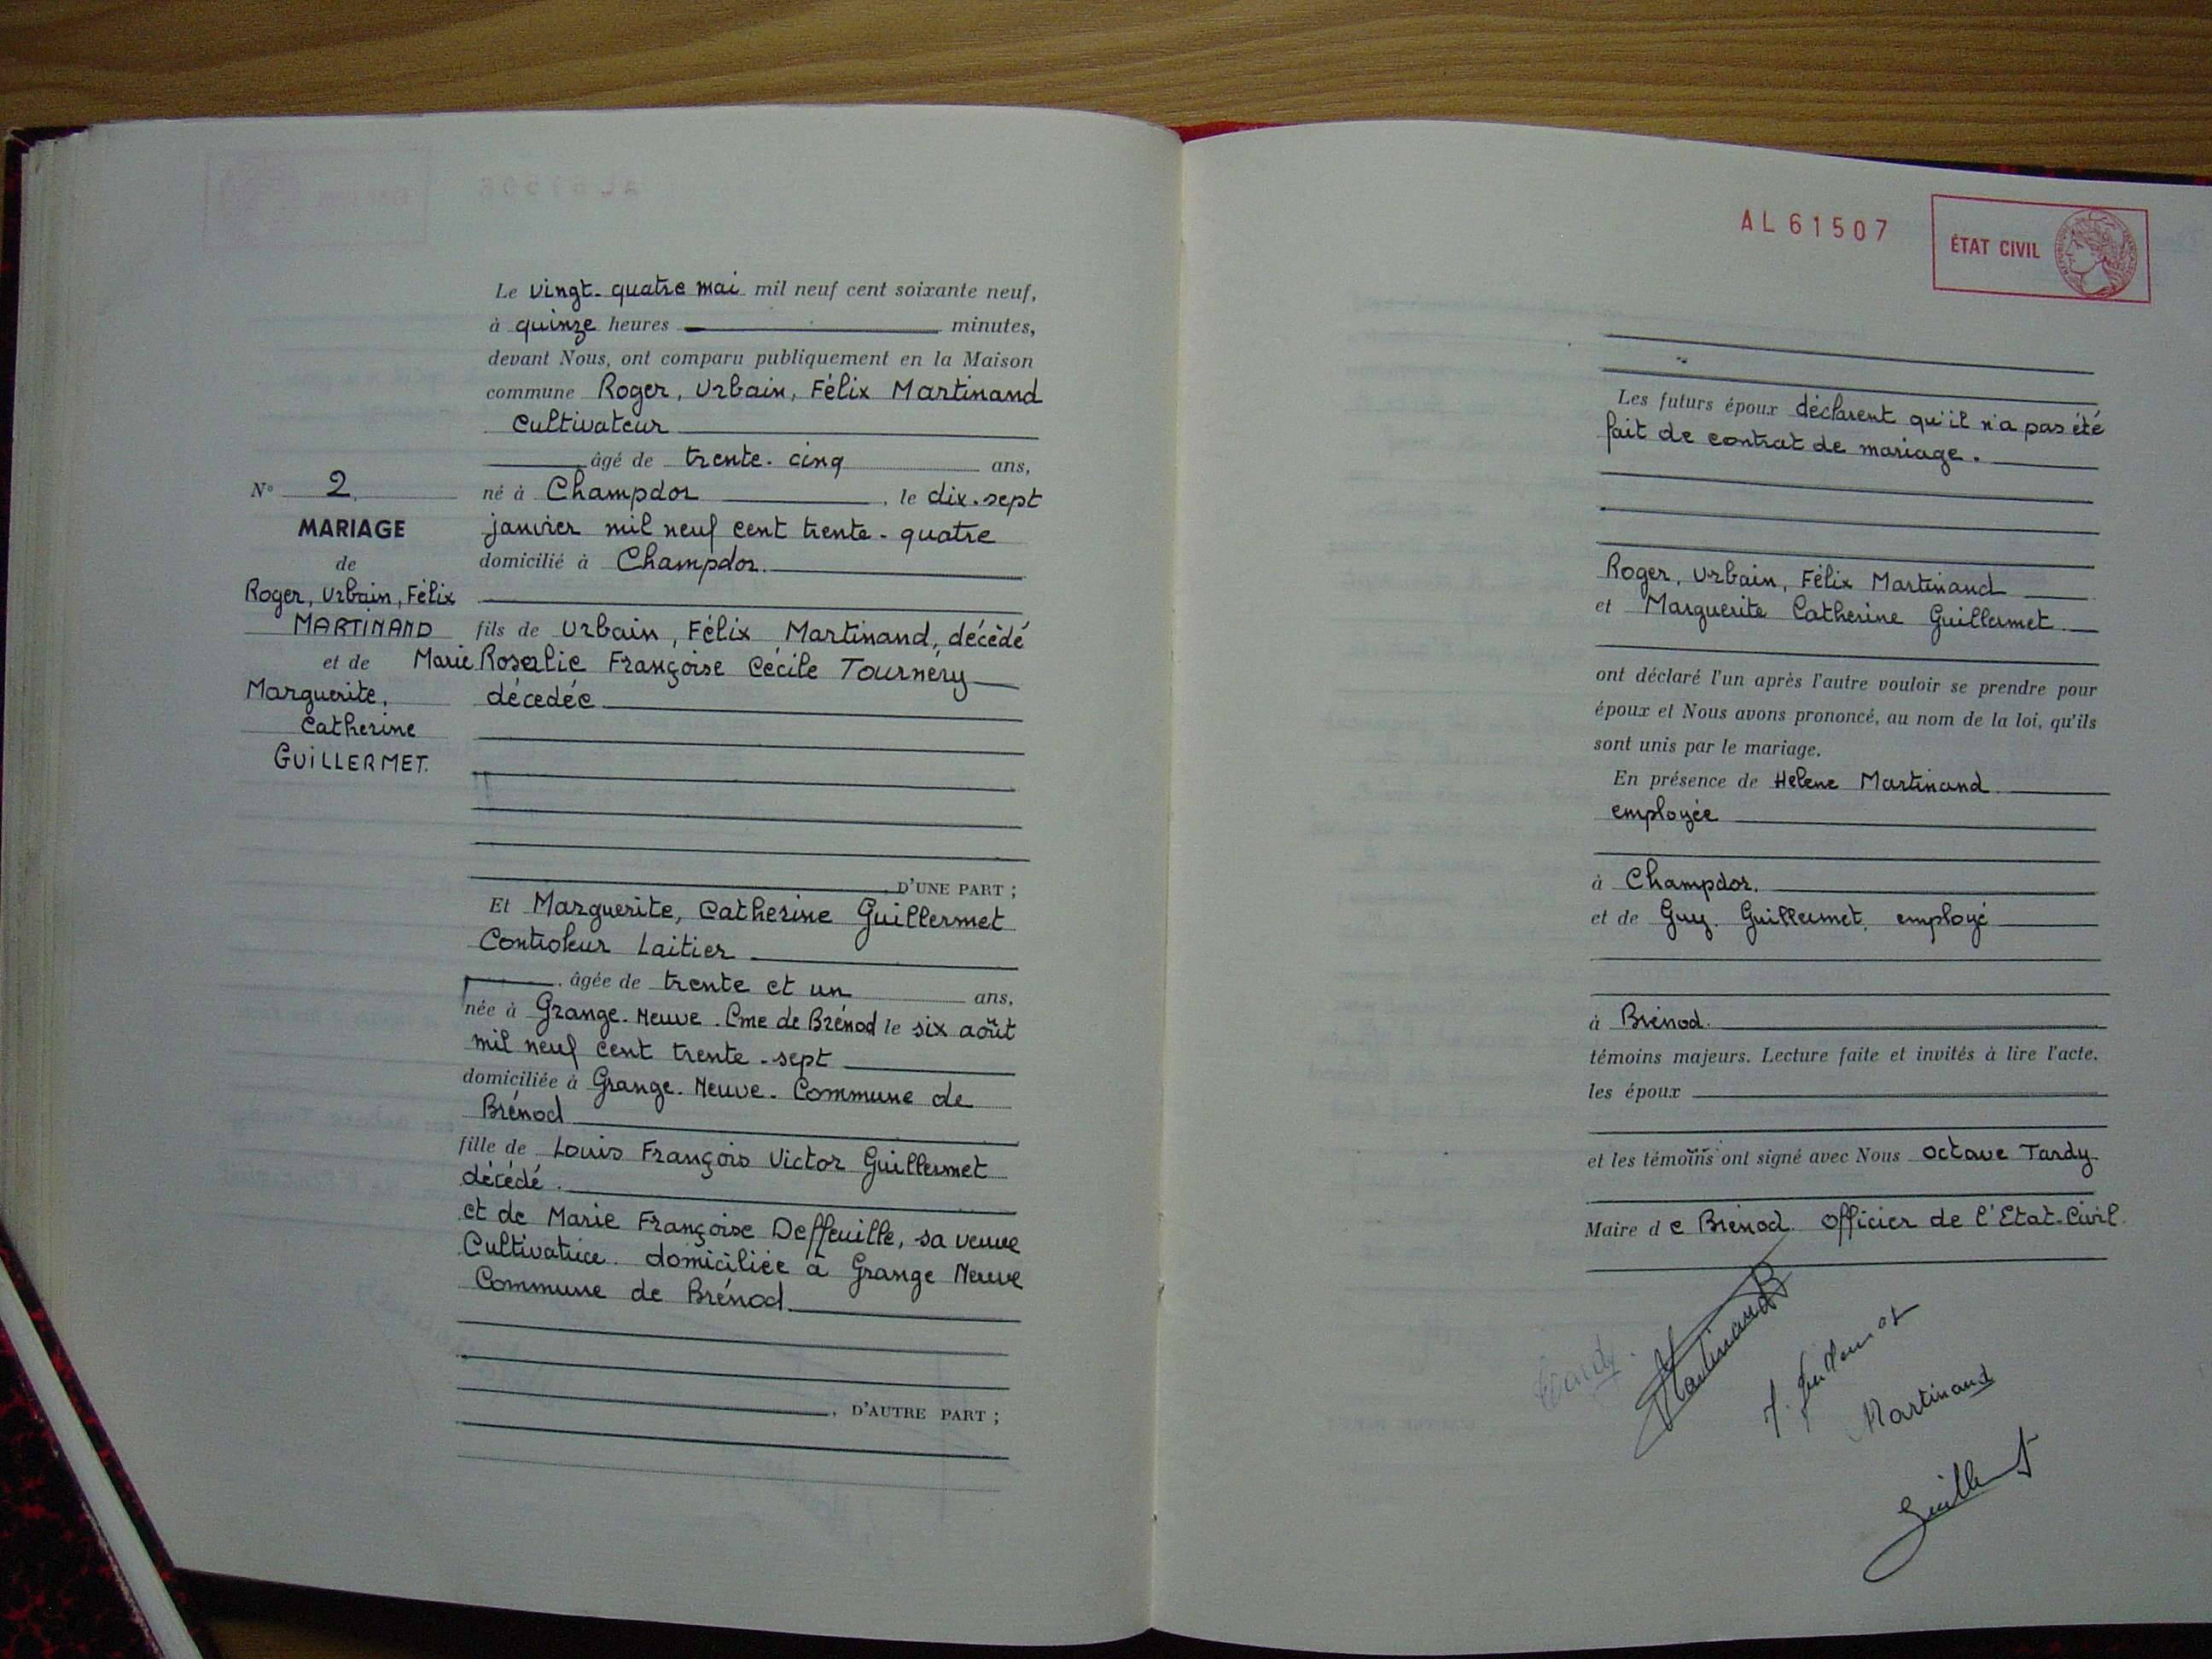 Le vingt-quatre mai mil neuf cent soixante neuf,
à quinze heures minutes,
devant Nous, ont comparu publiquement en la Maison
commune Roger, Urbain, Félix Martinand
Cultivateur
âgé de trente-cinq ans,
né à Champdor, le dix-sept
janvier mil neuf cent trente-quatre
domicilié à Champdor.
fils de Urbain, Félix Martinand, décédé
Marie Rosalie Françoise Cécile Tournéry
décedée
D'UNE PART ;
Et Marguerite, Catherine Guillermet
Controleur Laitier
âgée de trente et un ans,
née à Grange-Neuve. Cme de Brénod le six août
mil neuf cent trente-sept
domiciliée à Grange-Neuve. Commune de
Brénod
fille de Louis François Victor Guillermet
décédé.
et de Marie Françoise Deffeuille, sa veuve
Cultivatrice domiciliée à Grange Neuve
Commune de Brénod
D'AUTRE PART ;
N° 2
MARIAGE
de
Roger, Urbain, Félix
MARTINAND
et de
Marguerite,
Catherine
GUILLERMET.
AL 61507
ÉTAT CIVIL
Les futurs époux déclarent qu'il n'a pas été
fait de contrat de mariage.
Roger, Urbain, Félix Martinand
et Marguerite Catherine Guillermet
ont déclaré l'un après l'autre vouloir se prendre pour
époux et Nous avons prononcé, au nom de la loi, qu'ils
sont unis par le mariage.
En présence de Hélène Martinand
employée
à Champdor.
et de Guy Guillermet, employé
à Brénod.
témoins majeurs. Lecture faite et invités à lire l'acte,
les époux
et les témoins ont signé avec Nous Octave Tardy
Maire de Brénod. Officier de l'Etat-Civil.
Tardy
Martinand
Martinand